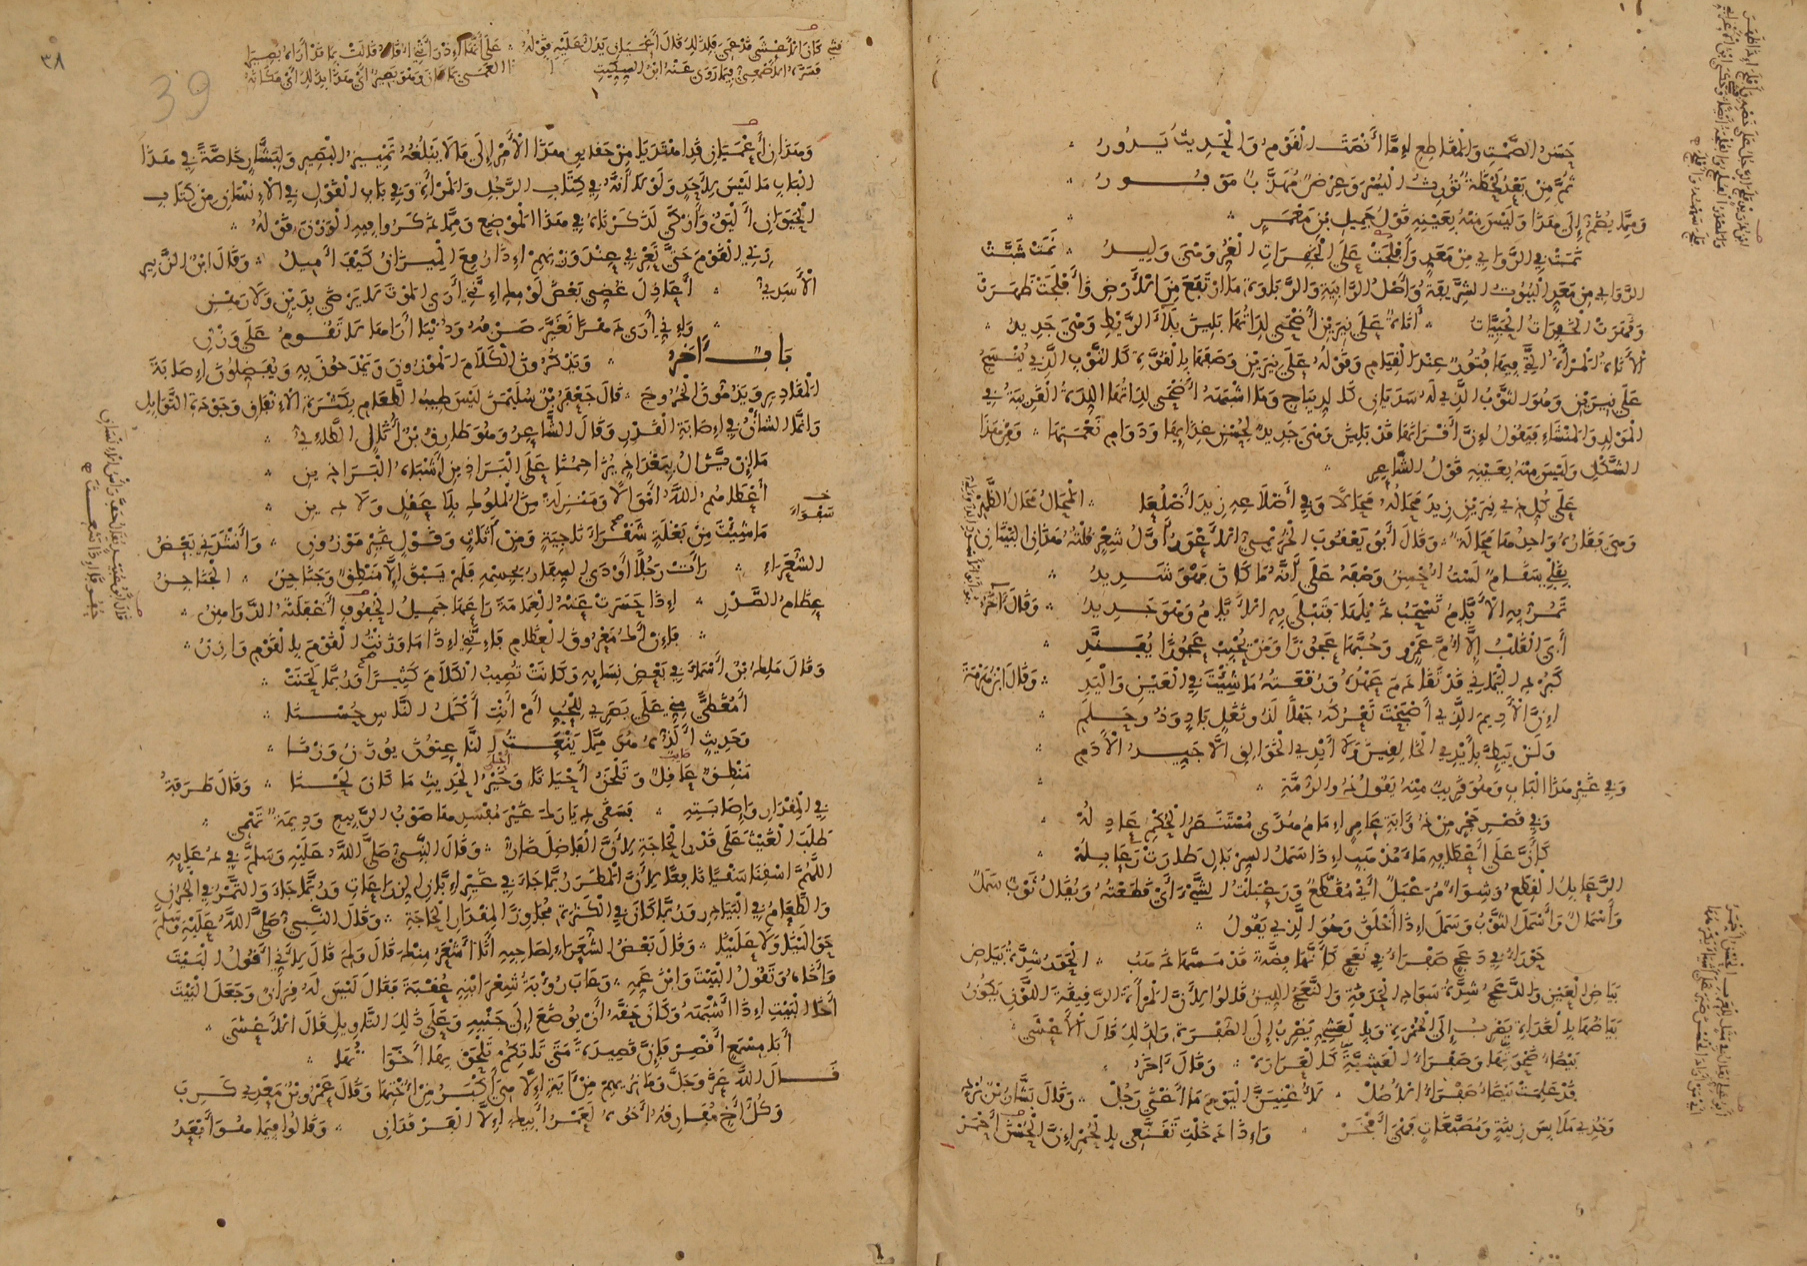 حسن الصمت والمقاطع إما أنصت القوم والحديث يدور
ثم من بعد لحظة تورث اليسر وعرض مهذب موفور
ومما يضم إلى هذا وليس منه بعينه قول جميل بن معمر
نمت في الروابي من معد وأفلجت على الخفرات الغر وهي وليد نمت شبت
الروابي من معد البيوت الشريفة وأصل الرابية والرباوة ما ارتفع من الأرض وأفلجت ظهرت
وقهرت الخفرات الحييات أناة على نيرين أضحى لداتها بلين بلاء الريط وهي جديد
الأناة المرأة التي فيها فتور عند القيام وقوله على نيرين وصفها بالقوة كالثوب الذي ينسج
على نيرين وهو الثوب الذي له سديان كالديباج وما اشبهه أضحى لداتها اللدة القرينة في
المولد والمنشاء فيقول إن أقرانها قد بلين وهي جديد لحسن غذائها ودوام نعمتها ومن هذا
الشكل وليس منه بعينه قول الشاعر
على كل ذي نيرين زيد محاله محالا وفي أضلاعه زيد أضلعا المحال محال الظهر
وهي فقاره واحدها محالة وقال أبو يعقوب الخريمي الأعور أول شعر قلته هذان البيتان
بقلبي سقام لست أحسن وصفه على أنه ما كان فهو شديد
تمر به الأيام تسحب ذيلها فتبلى به الأيام وهو جديد وقال آخر
أبى القلب إلا أم عمرو وحبها عجوزا ومن يحبب عجوزا يفند
كبرد اليماني قد تقادم عهده ورقعته ما شئت في العين واليد وقال ابن هرمة
إن الأديم الذي أصبحت تعركه جهلا لذو نغل باد وذو حلم
ولن يئط بأيدي الخالقين ولا أيدي الخوالق إلا جيد الأدم
وفي غير هذا الباب وهو قريب منه يقول ذو الرمة
وفي قصر حجر من ذؤابة عامر إمام هدى مستبصر الحكم عادله
كأن على أعطافه ماء مذهب إذا سمل السربال طارت رعابله
الرعابل القطع وشواء مرعبل أي مقطع ورعبلت الشيء أي قطعته ويقال ثوب سمل
وأسمال وأسمل الثوب وسمل إذا أخلق وهو الذي يقول
حوراء في دعج صفراء في نعج كأنها فضة قد مسها ذهب الحور شدة بياض
بياض العين والدعج شدة سواد الحدقة والنعج اللين قالوا لأن المرأة الرقيقة اللون يكون
بياضها بالغداة يضرب إلى الحمرة وبالعشي يضرب إلى الصفرة ولذلك قال الأعشى
بيضاء ضحوتها وصفراء العشية كالعرارة وقال آخر
قد علمت بيضاء صفراء الأصل لأغنين اليوم ما أغنى رجل وقال بشار بن برد
وخذي ملابس زينة ومصبغات فهي أفخر وإذا دخلت تقنعي بالحمر إن الحسن أحمر
٣٨
39
وهذان أعميان قد اهتديا من حقايق هذا الأمر إلى ما لا يبلغه تمييز البصير ولبشار خاصة في هذا
الباب ما ليس لأحد ولولا أنه في كتاب الرجل والمرأة وفي باب القول في الإنسان من كتاب
الحيوان أليق وأزكى لذكرناه في هذا الموضع ومما ذكروا فيه الوزن قوله
زني القوم حتى تعرفي عند وزنهم إذا رفع الميزان كيف أميل وقال ابن الزبير
الأسدي أعاذل غضي بعض لومك إنني أرى الموت لا يرضى بدين ولا رهن
وإني أرى دهرا تغير صرفه ودنيا أراها لا تقوم على وزن
باب آخر ويذكرون الكلام الموزون ويمدحون به ويفضلون إصابة
المقادير ويذمون الخروج قال جعفر بن سليمن ليس طيب الطعام بكثرة الإنفاق وجودة التوابل
وإنما الشأن في إصابة القدر وقال الشاعر وهو طارق بن أثال الطائي
ما إن يزال ببغداذ يزاحمنا على البراذين أشباه البراذين
أعطاهم الله أموالا ومنزلة من الملوك بلا عقل ولا دين
ما شئت من بغلة سفواء ناجية ومن أثاث وقول غير موزون وأنشدني بعض
الشعراء رأت رجلا أودى السفار بجسمه فلم يبق إلا منطق وجناجن الجناجن
عظام الصدر إذا حسرت عنه العمامة راعها جميل الحفوف أغفلته الدواهن
فإن أك معروق العظام فإنني إذا ما وزنت القوم بالقوم وازن
وقال ملك بن أسماء في بعض نسايه وكانت تصيب الكلام كثيرا وربما لحنت
أمغطى مني على بصري للحب أم أنت أكمل الناس حسنا
وحديث ألذه هو مما ينعت الناعتون يوزن وزنا
منطق عاقل وتلحن أحيانا وخير الحديث ما كان لحنا وقال طرفة
في المقدار وإصابته فسقى ديارك غير مفسدها صوب الربيع وديمة تهمي
طلب الغيث على قدر الحاجة لأن الفاضل ضار وقال النبي صلى الله عليه وسلم في دعايه
اللهم اسقنا سقيا نافعا لأن المطر ربما جاء في غير إبان الزراعات وربما جاء والتمر في الجرن
والطعام في البيادر وربما كان في الكثرة مجاوزا لمقدار الحاجة وقال النبي صلى الله عليه وسلم
حوالينا ولا علينا وقال بعض الشعراء لصاحبه أنا أشعر منك قال ولم قال لأني أقول البيت
وأخاه وتقول البيت وابن عمه وعاب رؤبة شعر ابنه عقبة فقال ليس له قران وجعل البيت
أخا البيت إذا أشبهه وكان حقه أن يوضع إلى جنبه وعلى ذلك التأويل قال الأعشى
أبا مسمع أقصر فإن قصيدة متى تأتكم تلحق بها أخواتها
قال الله عز وجل وما نريهم من آية إلا هي أكبر من أختها وقال عمرو بن معدي كرب
وكل أخ مفارقه أخوه لعمر أبيك إلا الفرقدان وقالوا فيما هو أبعد